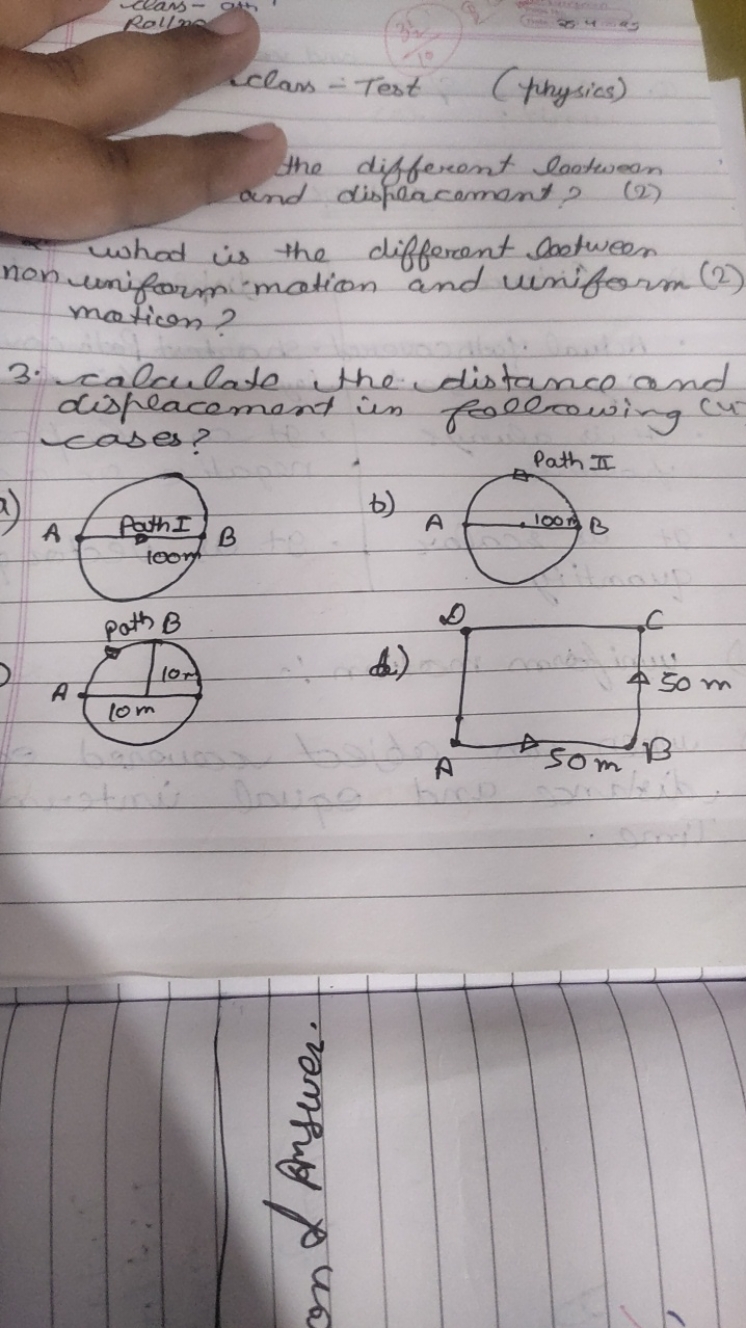 class - 9th
Rollno
3½
10
class - Test (physics)
the different between
and displacement? (2)
what is the different between
non uniform motion and uniform (2)
motion?
3. calculate the distance and
displacement in following (4
cases?
a) A Path I B
100m
b) Path II
A 100m B
Path B
A 10m
10m
d) D C
50 m
A 50m B
on of Answer.